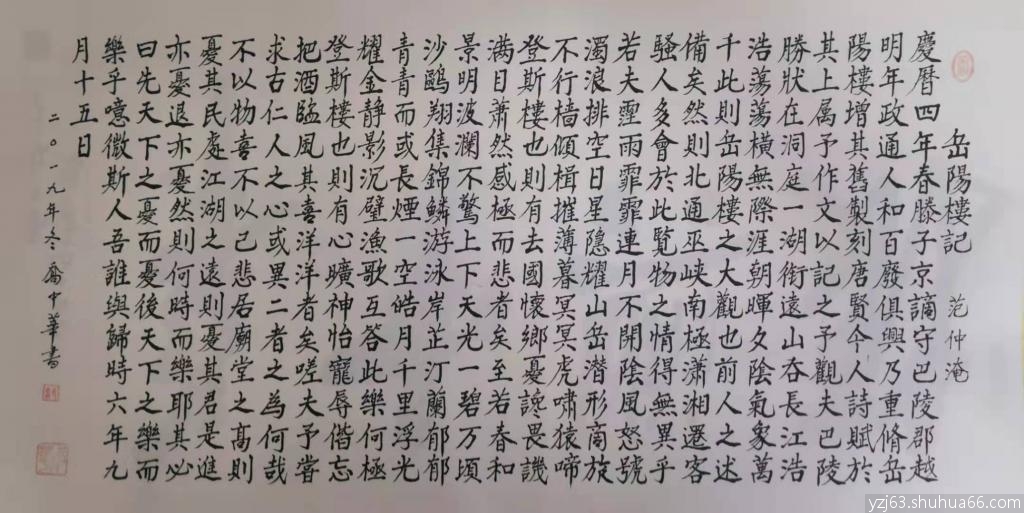 岳陽樓記 范仲淹
慶曆四年春滕子京謫守巴陵郡越
明年政通人和百廢俱興乃重脩岳
陽樓增其舊製刻唐賢今人詩賦於
其上属予作文以記之予觀夫巴陵
勝狀在洞庭一湖銜遠山吞長江浩
浩蕩蕩橫無際涯朝暉夕陰氣象萬
千此則岳陽樓之大觀也前人之述
備矣然則北通巫峽南極瀟湘遷客
騷人多會於此覽物之情得無異乎
若夫霪雨霏霏連月不開陰風怒號
濁浪排空日星隱耀山岳潛形商旅
不行檣傾楫摧薄暮冥冥虎嘯猿啼
登斯樓也則有去國懷鄉憂讒畏譏
滿目蕭然感極而悲者矣至若春和
景明波瀾不驚上下天光一碧萬頃
沙鷗翔集錦鱗游泳岸芷汀蘭郁郁
青青而或長煙一空皓月千里浮光
耀金靜影沉璧漁歌互答此樂何極
登斯樓也則有心曠神怡寵辱偕忘
把酒臨風其喜洋洋者矣嗟夫予嘗
求古仁人之心或異二者之為何哉
不以物喜不以己悲居廟堂之高則
憂其民處江湖之遠則憂其君是進
亦憂退亦憂然則何時而樂耶其必
曰先天下之憂而憂後天下之樂而
樂乎噫微斯人吾誰與歸時六年九
月十五日
二〇一九年冬 喬中華書
yzj63.shuhua66.com